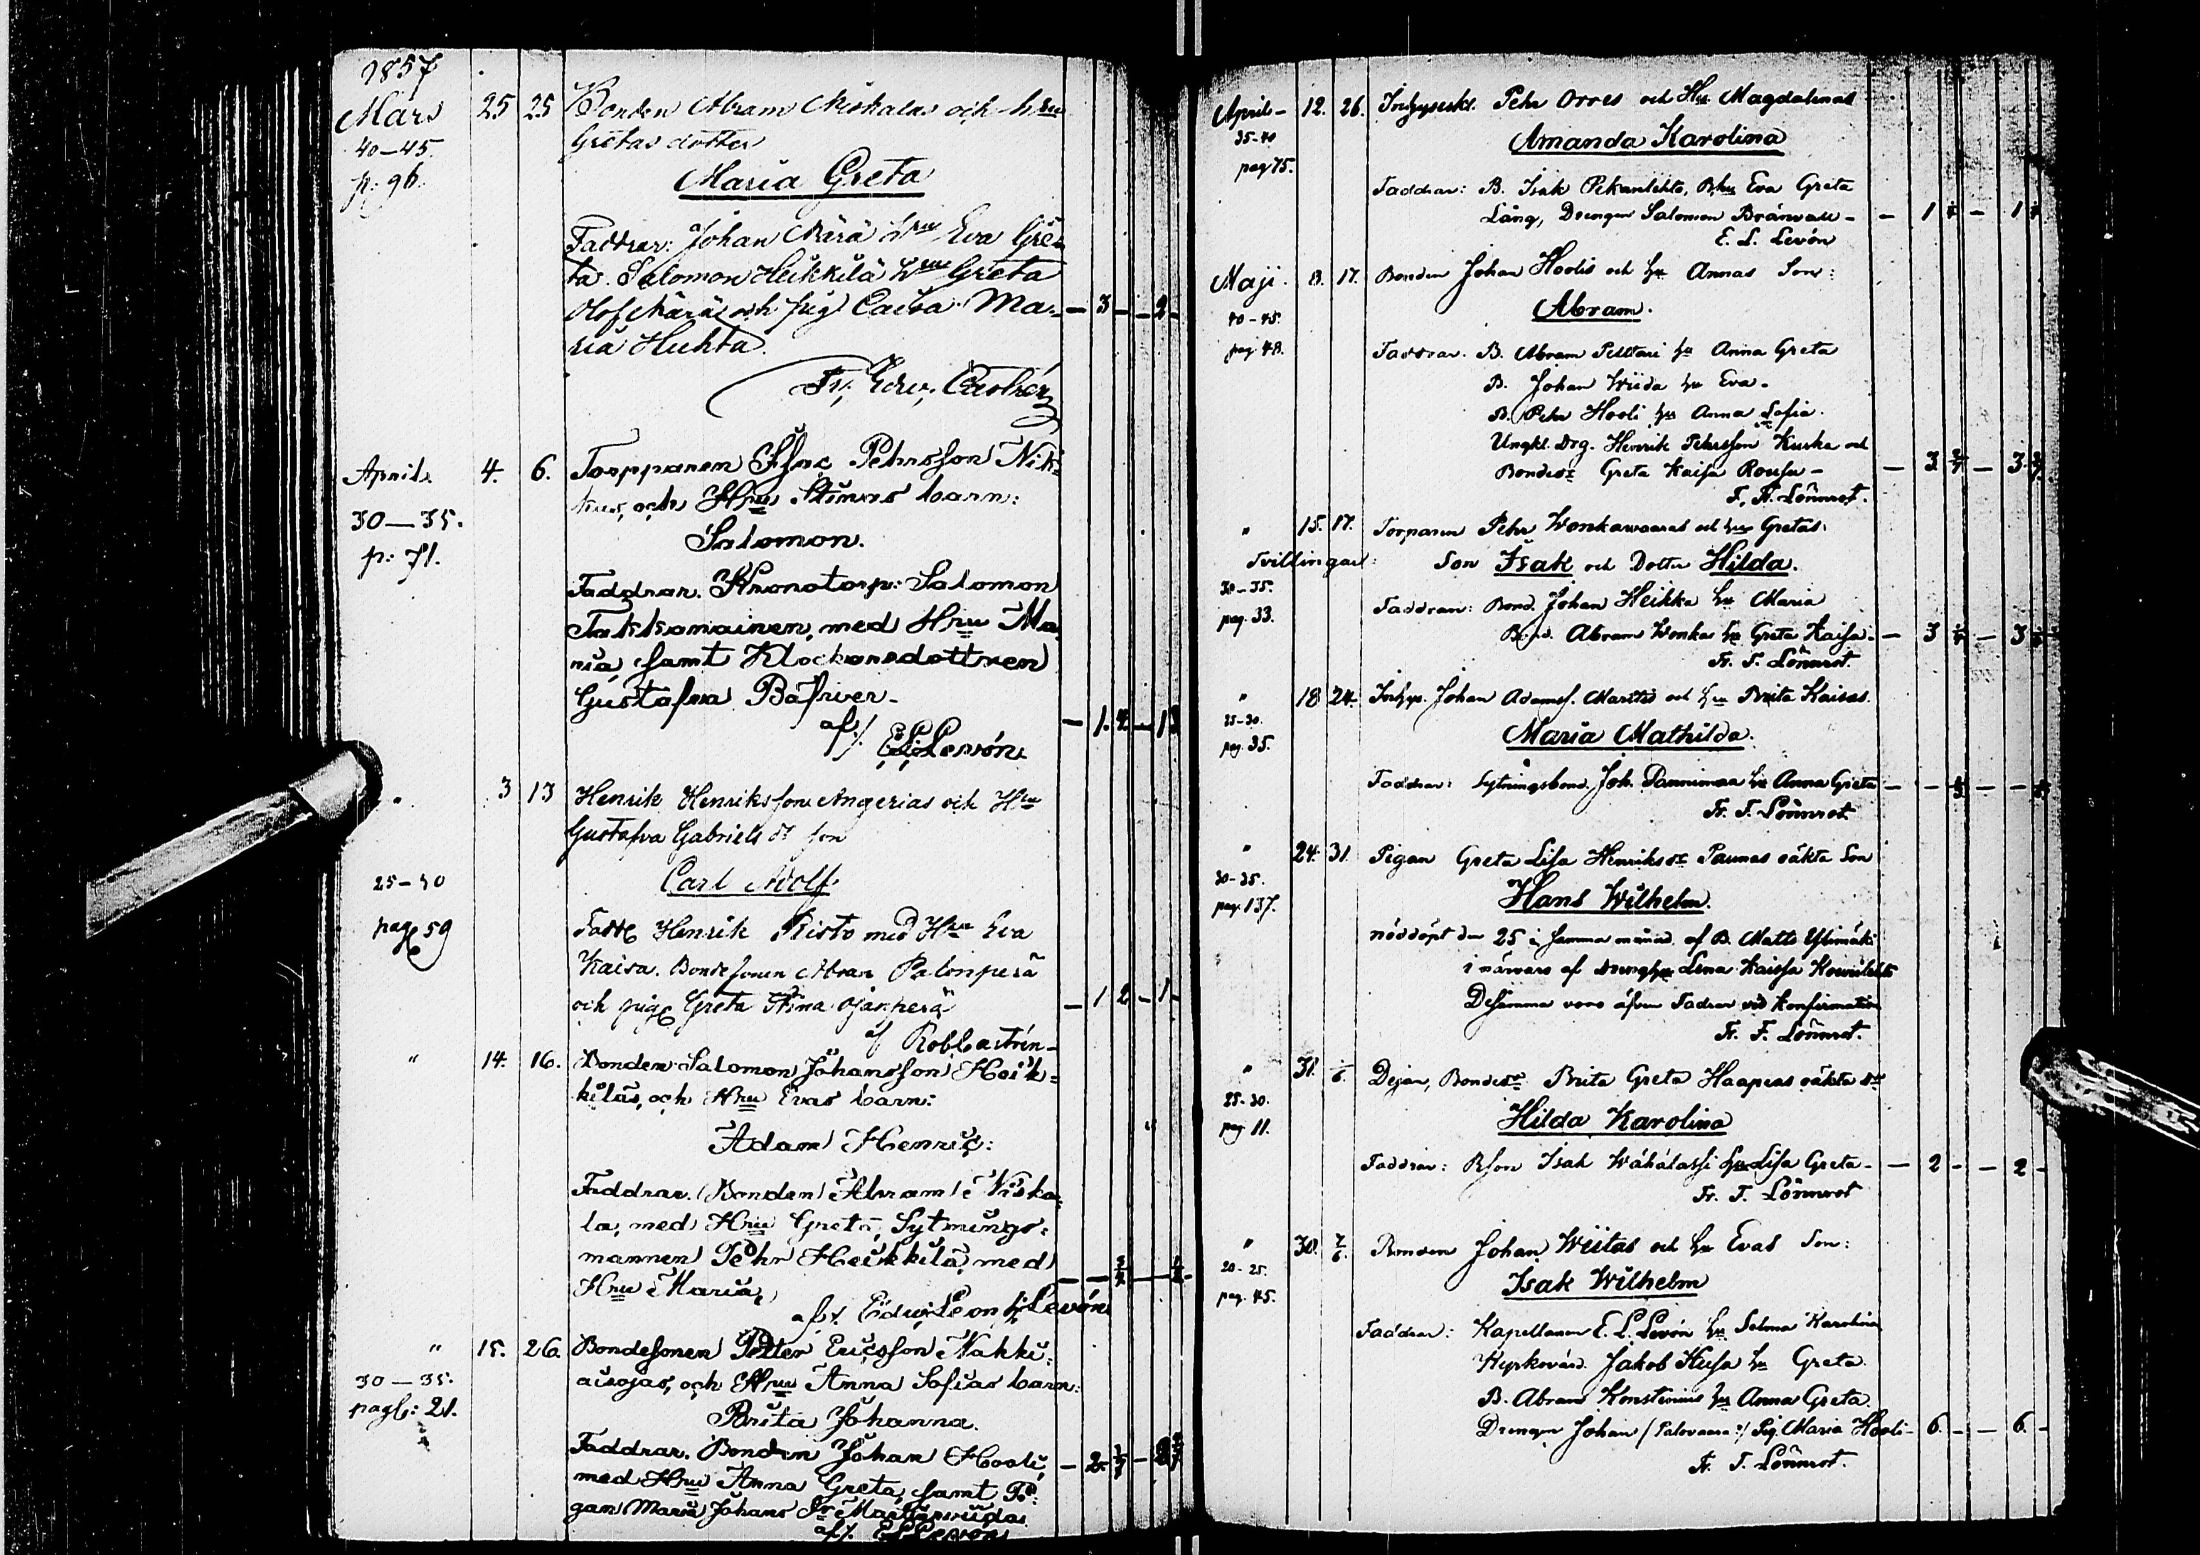 1857
Mars 25 25 Bonden Abram Niskalas och hru
40-45. Gretas dotter
p: 96. Maria Greta
Faddrar: Johan Närä hru Eva Gre-
ta. Salomon Heikkilä hru Greta
Olof Närä och pig Caisa Ma- — 3 — — 2 —
ria Huhta.
Fr. Edw. Castrén
April. 4. 6. Torpparen Isac Pehrsson Nik-
kus, och Hru Stinas barn:
30—35. Salomon.
p: 71.
Faddrar. Kronotorp: Salomon
Takkonainen, med Hru Ma
ria, samt Klockaredottren
Gustafva Bäfver.
af/. E. L. Levón
" 3 13 Henrik Henriksson Angerias och Hru
Gustafva Gabriels dr son
25-30 Carl Adolf
pag 59 Fadd Henrik Risto med Hru Eva
Kaisa. Bondesonen Abram Palonperä
och pig Greta Stina Ojanperä — 1 2 — 1 —
af Rob. Castrén
" 14. 16. Bonden Salomon Johansson Heik-
kiläs, och Hru Evas barn:
Adam Henric:
Faddrar. Bonden Abram Niska-
la, med Hru Greta, Sytnings-
mannen Pehr Heikkilä, med
Hru Maria,
af/. Edw: Leon: Levón
" 15. 26. Bondesonen Petter Ericsson Nakku-
30—35. aisojas, och Hru Anna Sofias barn:
pag: 21. Brita Johanna.
Faddrar. Bonden Johan Hooli,
med Hru Anna Greta, samt Pi-
gan Maria Johans Dr
af/. E L Levón
April- 12. 26. Inhysesk. Pehr Orres och Hu Magdalenas
35-40 Amanda Karolina
pag 75.
Faddrar: B. Isak Pekanlehto, Bhu Eva Greta
Lång, Drengen Salomon
E. L. Levón
Maji. 8. 17. Bonden Johan Hoolis och hu Annas Son:
40-45. Abram.
pag. 48. Faddrar. B. Abram Pelttari hu Anna Greta
B. Johan Wiida hu Eva.
B. Pehr Hooli hu Anna Sofia.
Ungk. Drg. Henrik Pehrsson Kurka och
Bondedr Greta Kaisa
F. F. Lönnrot.
" 15. 17. Torparen Pehr Wonkawaaras och hu Gretas
Tvillingar: Son Isak och Dotter Hilda.
30-35.
pag. 33. Faddrar: Bond. Johan Heikka hu Maria
Bond. Abram Wonka hu Greta Kaisa.
Fr. F. Lönnrot.
" 18 24. Inhys. Johan Adamss. Marttis och hu Brita Kaisas.
25-30. Maria Mathilda.
pag. 35.
Faddrar: Sytningsbond. Joh. Pannimaa hu Anna Greta
Fr. F. Lönnrot
" 24. 31. Pigan Greta Lisa Henriksdr Paunas oäkta Son
30-35. Hans Wilhelm.
pag. 137.
nöddöpt den 25 i samma månad af B. Matts Ylimäki
i närvaro af drengh Lena Kaisa
Desamma voro äfven Fadrar vid konfirmation
Fr. F. Lönnrot.
" 31. /6. Dejan, Bondedr Brita Greta Haapias oäkta dr
25-30. Hilda Karolina
pag. 11.
Faddrar: Bson Isak Wähälassi hu Lisa Greta. — 2 - — 2 -
Fr. F. Lönnrot
" 30. 7/6. Bonden Johan Wiitas och hu Evas Son:
20-25. Isak Wilhelm
pag. 45.
Faddrar: Kapellanen E. L. Levón hu Selma Karolina
Kyrkovärd. Jakob Kusa hu Greta.
B. Abram Konstenius hu Anna Greta.
Drengen Johan /Palovaara:/ Pig. Maria Hooli - 6. - — 6. -
Fr. F. Lönnrot.